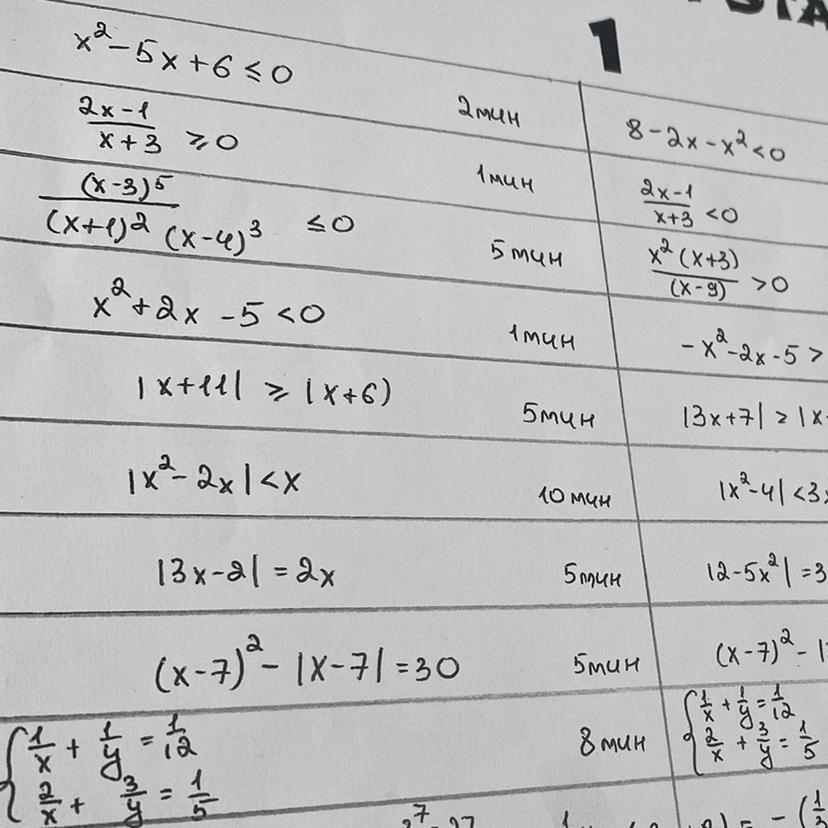 1
x² – 5x + 6 ≤ 0
2 мин
8 – 2x – x² < 0
(2x – 1)/(x + 3) ≥ 0
1 мин
(2x – 1)/(x + 3) < 0
(x – 3)⁵/((x + 1)² (x – 4)³) ≤ 0
5 мин
x² (x + 3)/(x – 9) > 0
x² + 2x – 5 < 0
1 мин
– x² – 2x – 5 >
|x + 11| ≥ |x + 6)
5 мин
|3x + 7| ≥ |x
|x² – 2x| < x
10 мин
|x² – 4| < 3x
|3x – 2| = 2x
5 мин
|2 – 5x²| = 3
(x – 7)² – |x – 7| = 30
5 мин
(x – 7)² – |
{ 1/x + 1/y = 1/12
2/x + 3/y = 1/5
8 мин
{ 1/x + 1/y = 1/12
2/x + 3/y = 1/5